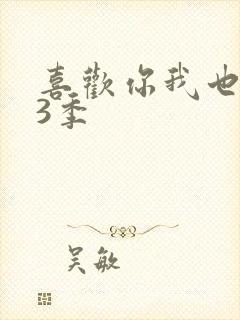 喜歡你我也
3季
吴敏